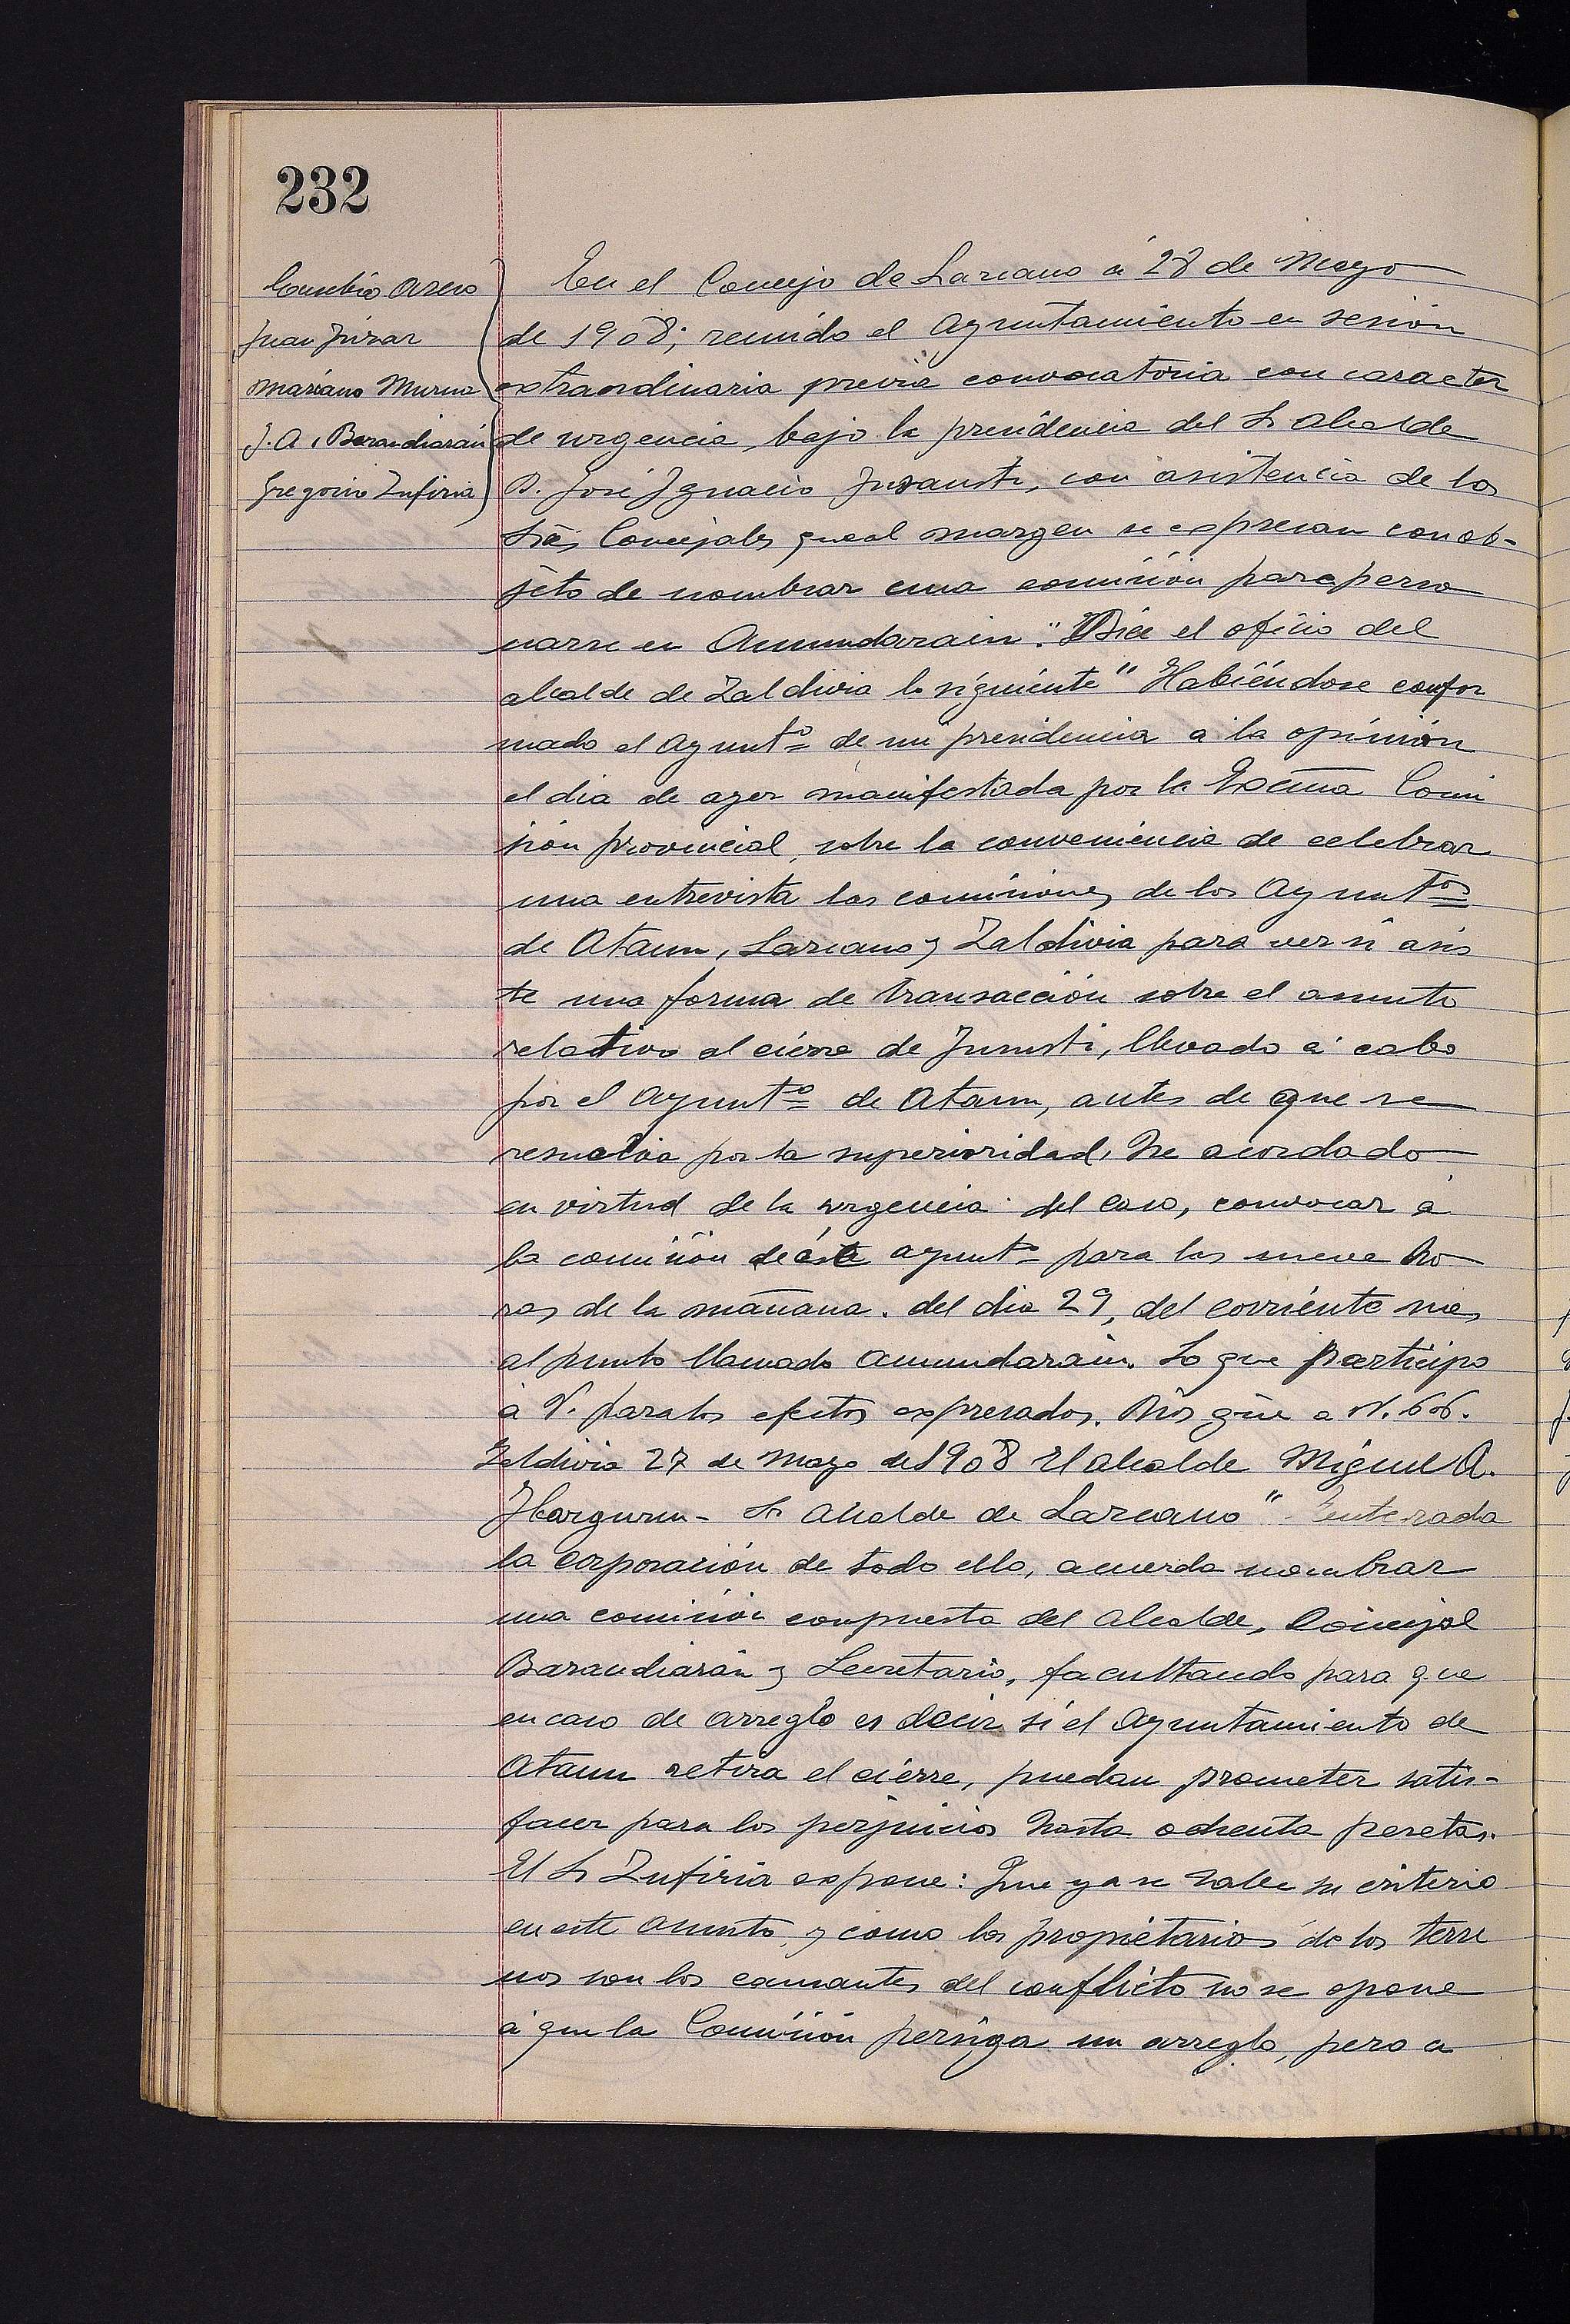 232
Eusebio Aseso
Juan Juzar
Mariano Murua
J. A. Barandiarán
Gregorio Zufiria
En el Concejo de Lazcano á 28 de Mayo
de 1908; reunido el Ayuntamiento en sesión
extraordinaria previa convocatoria con caracter
de urgencia, bajo la presidencia del Sr Alcalde
D. José Ignacio Insausti, con asistencia de los
Srēs Concejales que al margen se expresan con ob-
jeto de nombrar una comisión para perso
narse en Amundarain." Dice el oficio del
alcalde de Zaldivia lo siguiente "Habiéndose confor
mado el Ayuntº de mi presidencia á la opinión
el dia de ayer manifestada por la Excma Comi
sión provincial, sobre la conveniencia de celebrar
una entrevista las comisiones de los Ayuntos
de Ataun, Lazcano y Zaldivia para ver si asis
te una forma de transacción sobre el asunto
relativo al cierre de Jususti, llevado á cabo
por el Ayuntº de Ataun, antes de que se
resuelva por la superioridad, he acordado
en virtud de la urgencia del caso, convocar á
la comisión de éste ayuntº para las nueve ho
ras de la mañana. del dia 29, del corriente mes
al punto llamado Amundarain. Lo que participo
á V. para los efectos expresados. Dios güe a V. m. a.
Zaldivia 27 de Mayo de 1908 El alcalde Miguel A.
Ibarguren - Sr Alcalde de Lazcano" Enterada
la corporación de todo ello, acuerda nombrar
una comisión compuesta del Alcalde, Concejal
Barandiarán y Secretario, facultando para que
en caso de arreglo es decir si el Ayuntamiento de
Ataun retira el cierre, puedan prometer satis-
facer para los perjuicios hasta ochenta pesetas.
El Sr Zufiria expone: Que ya se sabe su criterio
en este asunto, y como los propietarios de los terre
nos son los causantes del conflicto no se opone
á que la Comisión persiga un arreglo, pero a